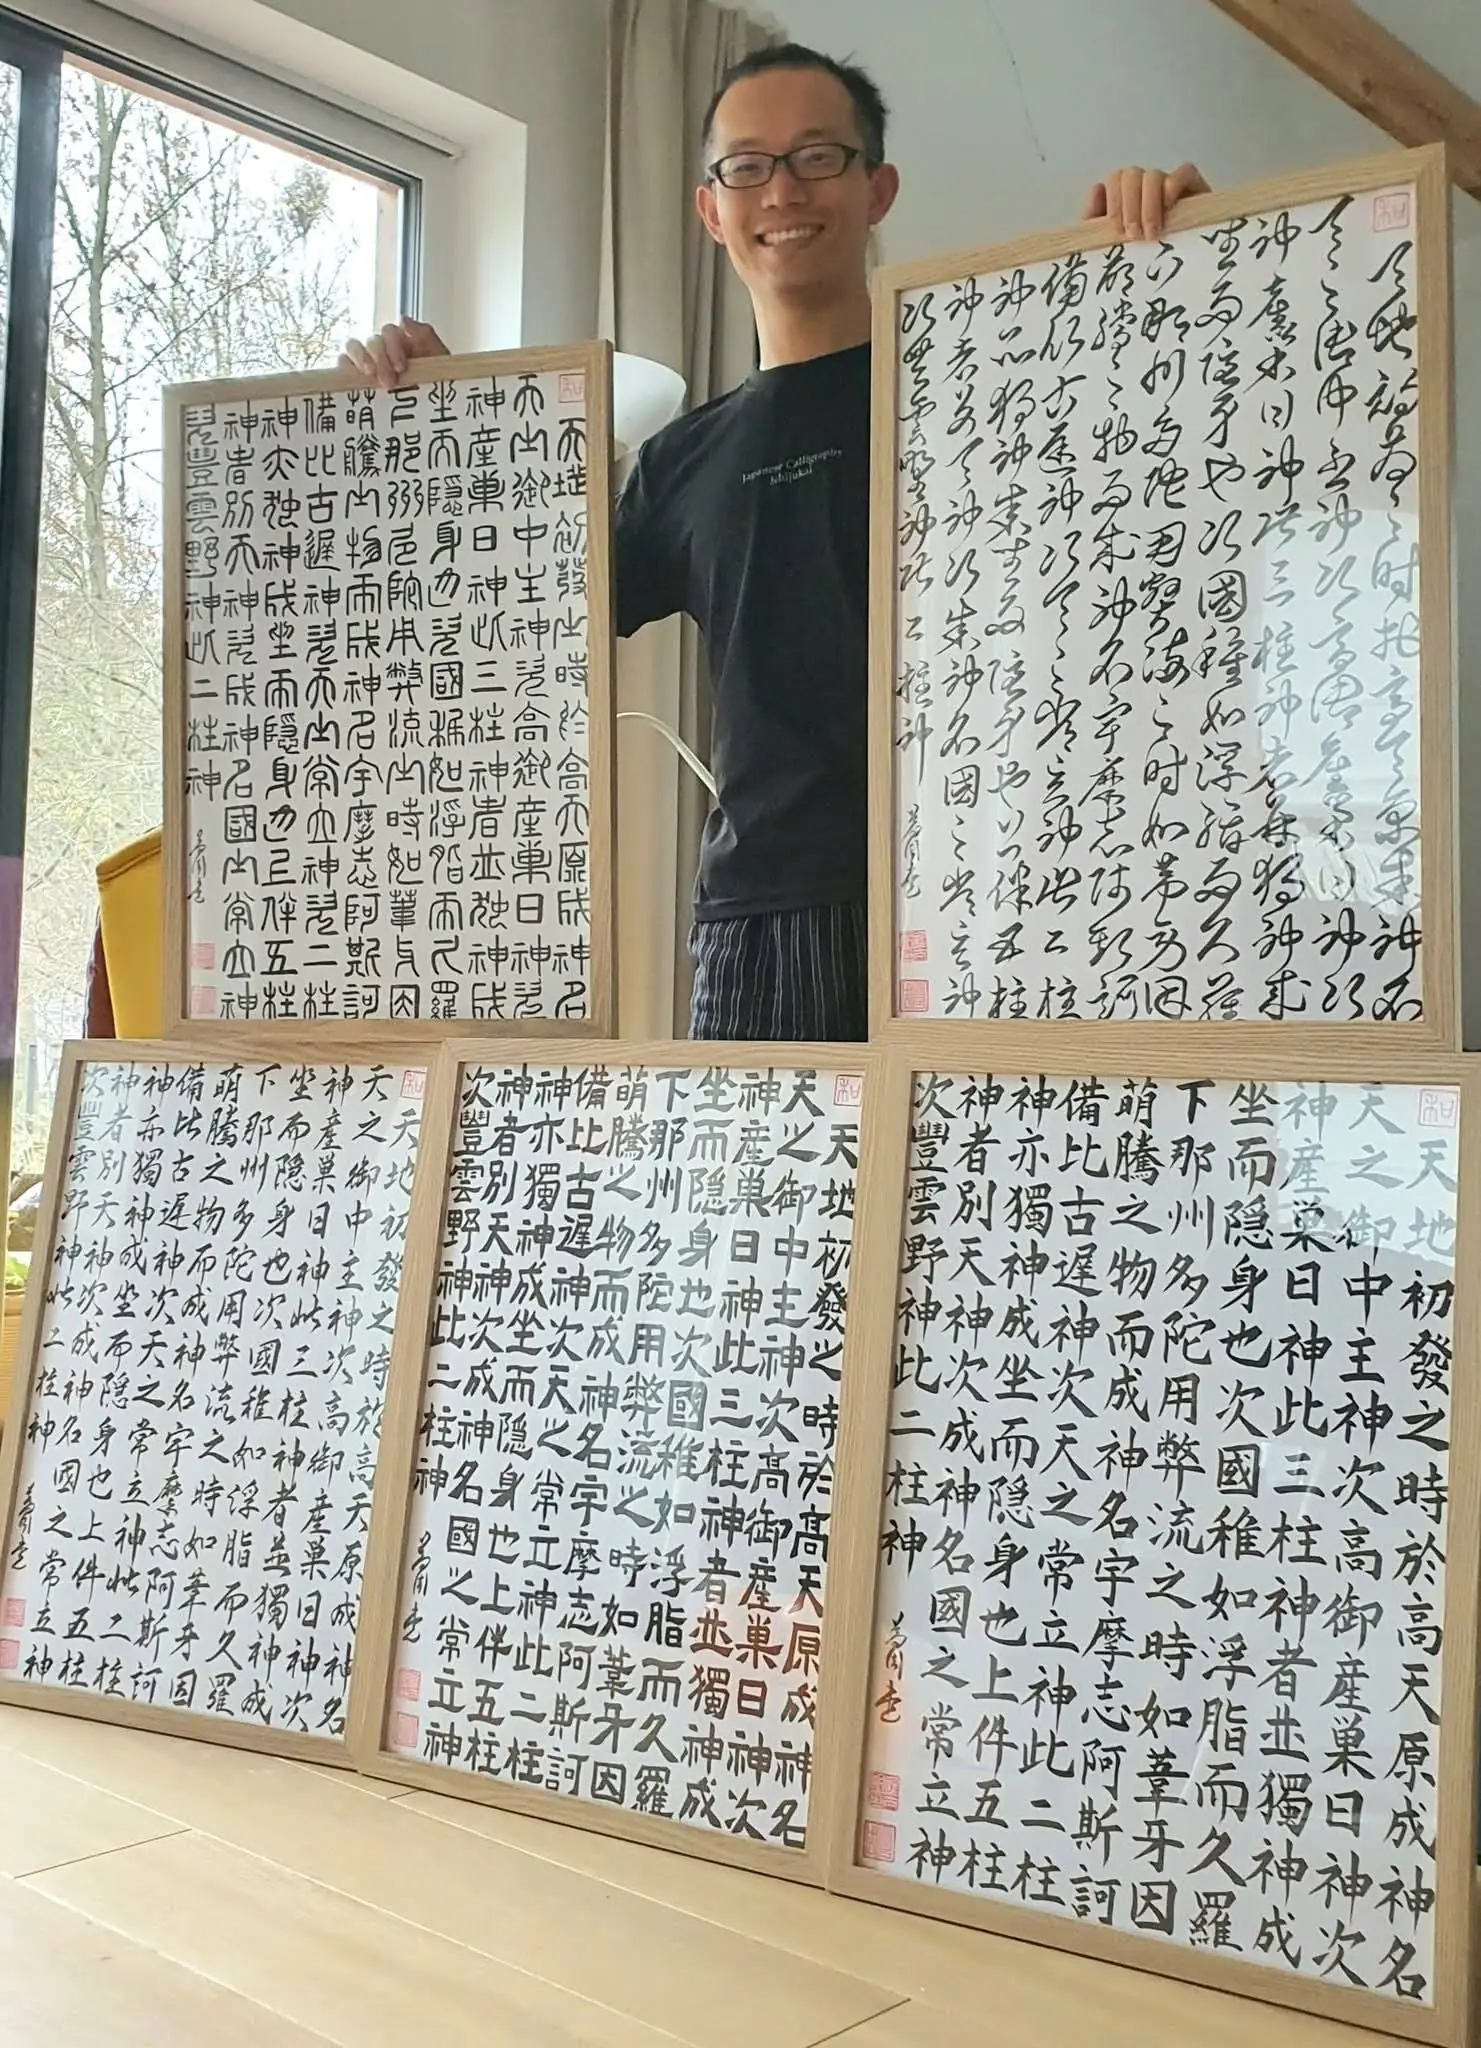 和
天地初發之時於高天原成神名
天之御中主神次高御産巣日神次
神産巣日神此三柱神者並独神成
坐而隠身也次國稚如浮脂而久羅
下那州多陀用弊流之時如葦牙因
萌騰之物而成神名宇摩志阿斯訶
備比古遅神次天之常立神次二柱
神亦独神成坐而隠身也上件五柱
神者別天神次成神名國之常立神
次豊雲野神此二柱神
Japanese Calligraphy
Ichijukai
和
天地初發之時於高天原成神名
天之御中主神次高御産巣日神次
神産巣日神此三柱神者並独神成
坐而隠身也次國稚如浮脂而久羅
下那州多陀用弊流之時如葦牙因
萌騰之物而成神名宇摩志阿斯訶
備比古遅神次天之常立神此二柱
神亦独神成坐而隠身也上件五柱
神者別天神次成神名國之常立神
次豊雲野神此二柱神
和
天地初發之時於高天原成神名
天之御中主神次高御産巣日神次
神産巣日神此三柱神者並獨神成
坐而隠身也次國稚如浮脂而久羅
下那州多陀用弊流之時如葦牙因
萌騰之物而成神名宇摩志阿斯訶
備比古遅神次天之常立神此二柱
神亦獨神成坐而隠身也上件五柱
神者別天神次成神名國之常立神
次豐雲野神此二柱神
和
天地初發之時於髙天原成神名
天之御中主神次髙御産巣日神次
神産巣日神此三柱神者並獨神成
坐而隠身也次國稚如浮脂而久羅
下那州多陀用弊流之時如葦牙因
萌騰之物而成神名宇摩志阿斯訶
備比古遅神次天之常立神此二柱
神亦獨神成坐而隠身也上件五柱
神者別天神次成神名國之常立神
次豐雲野神此二柱神
和
天地初發之時於高天原成神名
天之御中主神次高御産巣日神次
神産巣日神此三柱神者並獨神成
坐而隠身也次國稚如浮脂而久羅
下那州多陀用弊流之時如葦牙因
萌騰之物而成神名宇摩志阿斯訶
備比古遅神次天之常立神此二柱
神亦獨神成坐而隠身也上件五柱
神者別天神次成神名國之常立神
次豐雲野神此二柱神